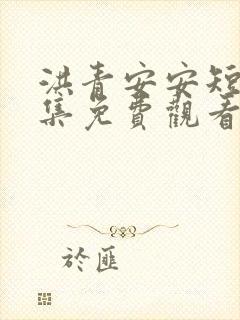 洪青安安短
集免費觀看
於匪